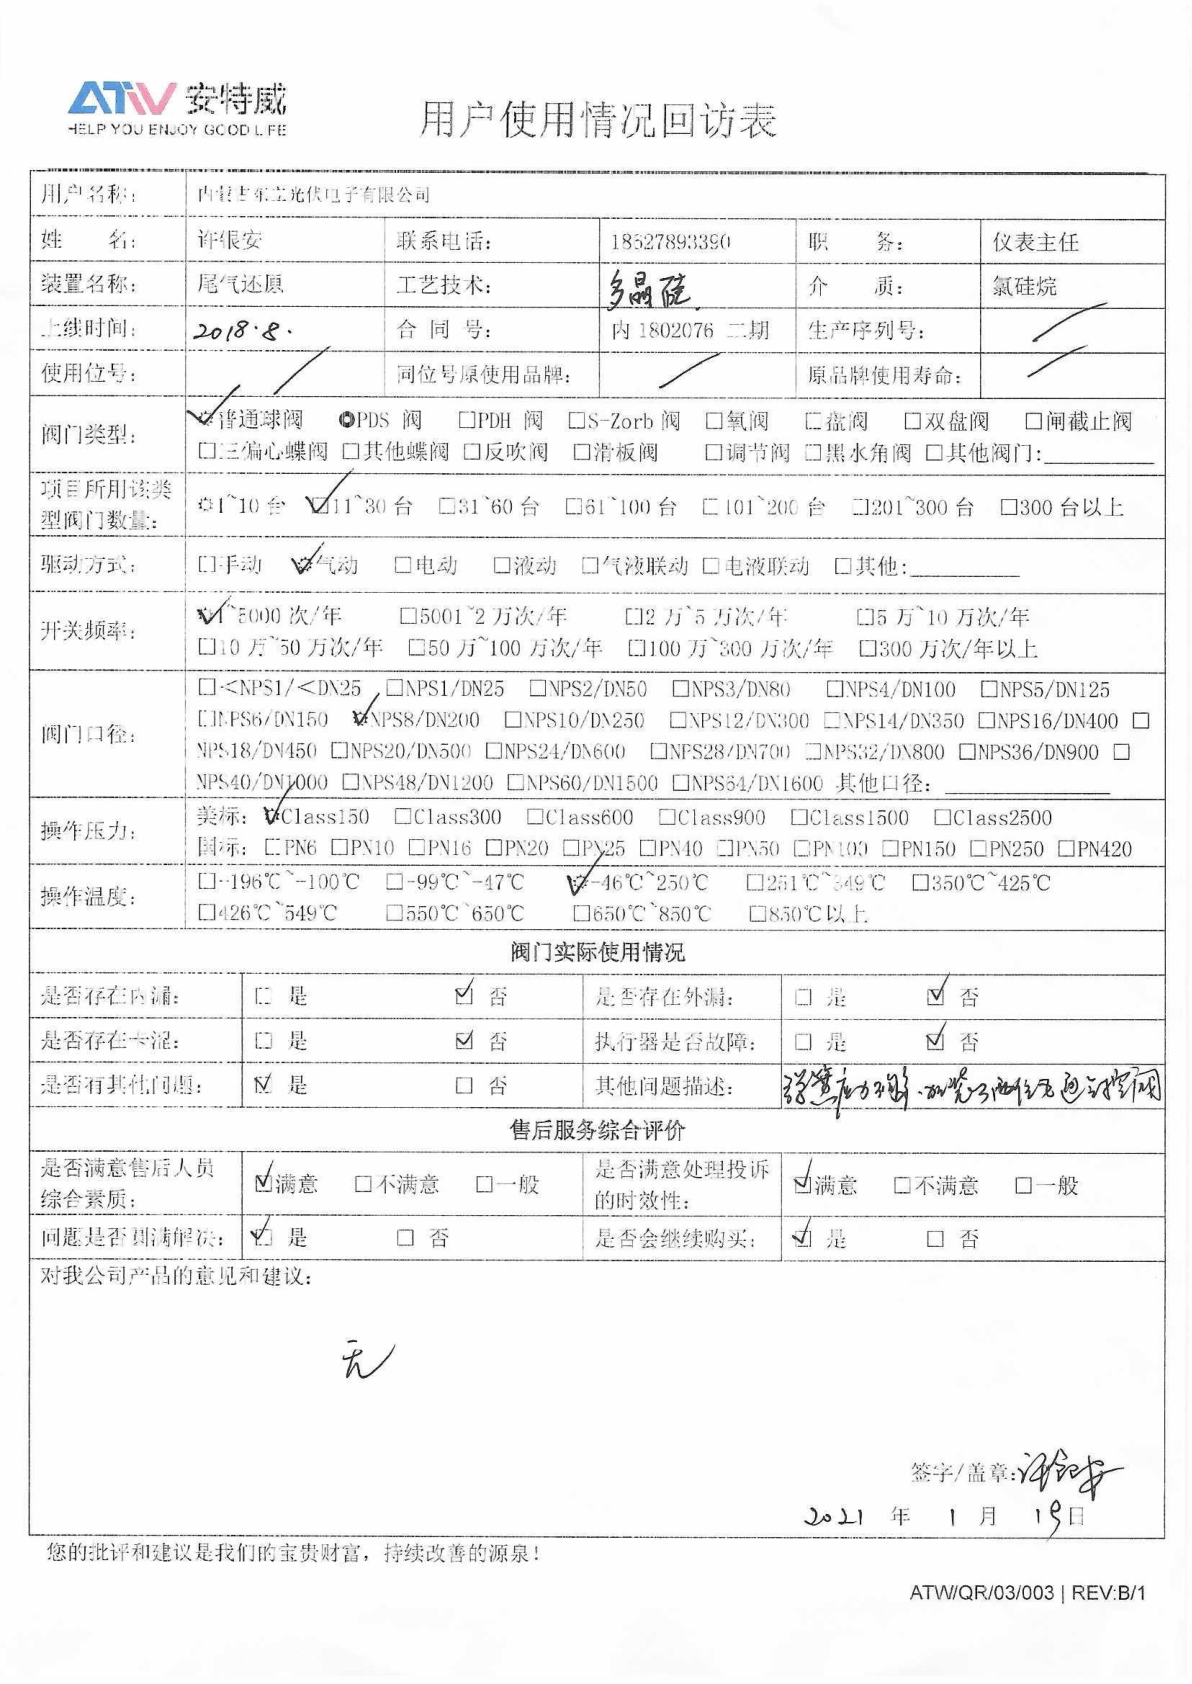 ATW 安特威
HELP YOU ENJOY GOOD LIFE
用户使用情况回访表
用户名称: 内蒙古东立光伏电子有限公司
姓 名: 许银安 联系电话: 18627893390 职 务: 仪表主任
装置名称: 尾气还原 工艺技术: 多晶硅 介 质: 氯硅烷
上线时间: 2018.8. 合 同 号: 内 1802076 二期 生产序列号: /
使用位号: / 同位号原使用品牌: / 原品牌使用寿命: /
阀门类型: ☑普通球阀 PDS 阀 □PDH 阀 □S-Zorb 阀 □氧阀 □盘阀 □双盘阀 □闸截止阀
□三偏心蝶阀 □其他蝶阀 □反吹阀 □滑板阀 □调节阀 □黑水角阀 □其他阀门:
项目所用该类型阀门数量: 1~10 台 ☑11~30 台 □31~60 台 □61~100 台 □101~200 台 □201~300 台 □300 台以上
驱动方式: □手动 ☑气动 □电动 □液动 □气液联动 □电液联动 □其他:
开关频率: ☑1~5000 次/年 □5001~2 万次/年 □2 万~5 万次/年 □5 万~10 万次/年
□10 万~50 万次/年 □50 万~100 万次/年 □100 万~300 万次/年 □300 万次/年以上
阀门口径: □<NPS1/<DN25 □NPS1/DN25 □NPS2/DN50 □NPS3/DN80 □NPS4/DN100 □NPS5/DN125
□NPS6/DN150 ☑NPS8/DN200 □NPS10/DN250 □NPS12/DN300 □NPS14/DN350 □NPS16/DN400 □
NPS18/DN450 □NPS20/DN500 □NPS24/DN600 □NPS28/DN700 □NPS32/DN800 □NPS36/DN900 □
NPS40/DN1000 □NPS48/DN1200 □NPS60/DN1500 □NPS64/DN1600 其他口径:
操作压力: 美标: ☑Class150 □Class300 □Class600 □Class900 □Class1500 □Class2500
国标: □PN6 □PN10 □PN16 □PN20 □PN25 □PN40 □PN50 □PN100 □PN150 □PN250 □PN420
操作温度: □-196℃~-100℃ □-99℃~-47℃ ☑-46℃~250℃ □251℃~349℃ □350℃~425℃
□426℃~549℃ □550℃~650℃ □650℃~850℃ □850℃以上
阀门实际使用情况
是否存在内漏: □ 是 ☑ 否 是否存在外漏: □ 是 ☑ 否
是否存在卡涩: □ 是 ☑ 否 执行器是否故障: □ 是 ☑ 否
是否有其他问题: ☑ 是 □ 否 其他问题描述:
售后服务综合评价
是否满意售后人员综合素质: ☑满意 □不满意 □一般 是否满意处理投诉的时效性: ☑满意 □不满意 □一般
问题是否圆满解决: ☑ 是 □ 否 是否会继续购买: ☑ 是 □ 否
对我公司产品的意见和建议:
无
签字/盖章: 许银安
2021 年 1 月 19 日
您的批评和建议是我们的宝贵财富，持续改善的源泉！
ATW/QR/03/003 | REV:B/1